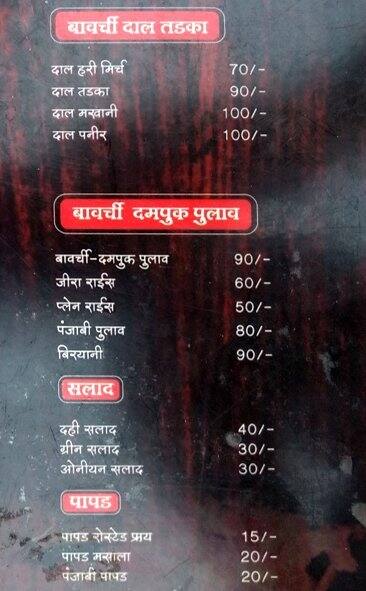 बावर्ची दाल तडका
दाल हरी मिर्च 70/-
दाल तडका 90/-
दाल मखानी 100/-
दाल पनीर 100/-
बावर्ची दमपुक पुलाव
बावर्ची-दमपुक पुलाव 90/-
जीरा राईस 60/-
प्लेन राईस 50/-
पंजाबी पुलाव 80/-
बिरयानी 90/-
सलाद
दही सलाद 40/-
ग्रीन सलाद 30/-
ओनीयन सलाद 30/-
पापड
पापड रोस्टेड फ्राय 15/-
पापड मसाला 20/-
पंजाबी पापड 20/-